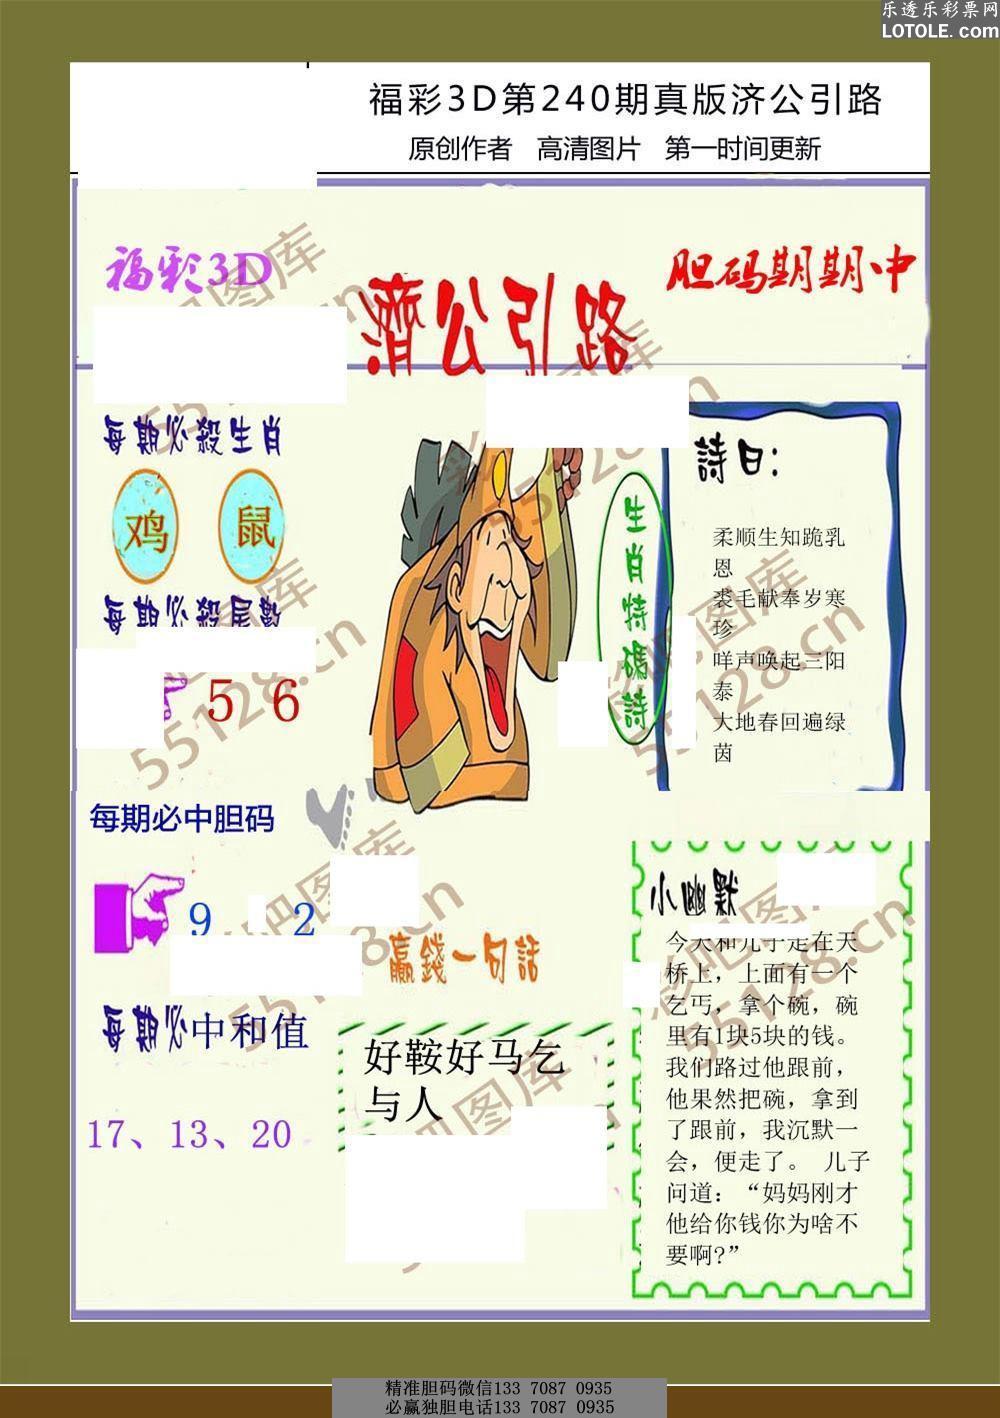 乐透乐彩票网
LOTOLE.com
福彩3D第240期真版济公引路
原创作者 高清图片 第一时间更新
福彩3D
胆码期期中
濟公引路
每期必殺生肖
鸡 鼠
每期必殺尾數
5 6
每期必中胆码
9 2
每期必中和值
17、13、20
生肖特碼詩
詩曰：
柔顺生知跪乳
恩
裘毛献奉岁寒
珍
咩声唤起三阳
泰
大地春回遍绿
茵
赢錢一句話
好鞍好马乞
与人
小幽默
今天和儿子走在天
桥上，上面有一个
乞丐，拿个碗，碗
里有1块5块的钱。
我们路过他跟前，
他果然把碗，拿到
了跟前，我沉默一
会，便走了。 儿子
问道：“妈妈刚才
他给你钱你为啥不
要啊?”
彩吧图库
55128.cn
精准胆码微信133 7087 0935
必赢独胆电话133 7087 0935